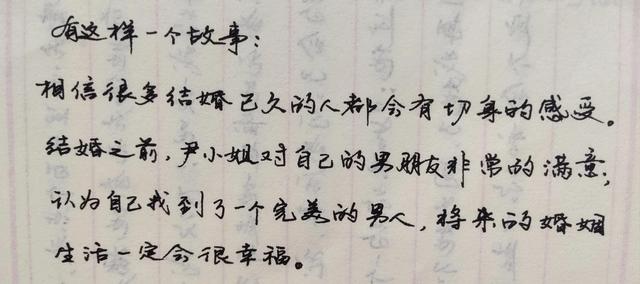 有这样一个故事：
相信很多结婚已久的人都会有切身的感受。
结婚之前，尹小姐对自己的男朋友非常的满意；
认为自己找到了一个完美的男人，将来的婚姻
生活一定会很幸福。